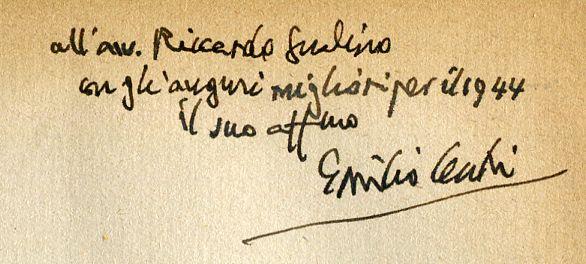 all'avv. Riccardo Gualino
con gli auguri migliori per il 1944
il suo affmo
Emilio Cecchi